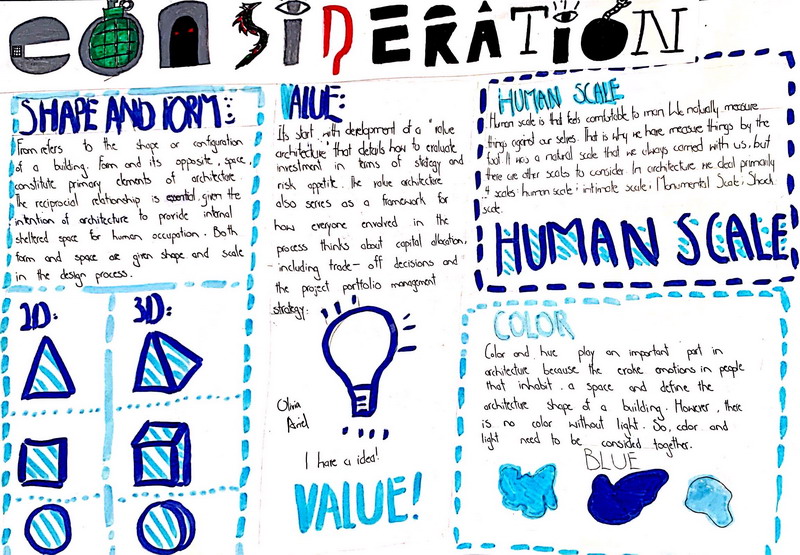 CONSIDERATION
SHAPE AND FORM:
From refers to the shape or configuration
of a building. Form and its opposite, space,
constitute primary elements of architecture.
The reciprocial relationship is essential, given the
intention of architecture to provide internal
sheltered space for human occupation. Both
form and space are given shape and scale
in the design process.
2D:
3D:
VALUE:
Its start with development of a "value
architecture" that details how to evaluate
investment in terms of strategy and
risk appetite. The value architecture
also series as a framework for
how everyone envolved in the
process thinks about capital allocation,
including trade-off decisions and
the project portfolio management
strategy.
Olivia
Ariel
I have a idea!
VALUE!
HUMAN SCALE
Human scale is that feels comfortable to man. We naturally measure
things against our selves. That is why we have measure things by the
foot. It was a natural scale that we always carried with us, but
there are other scales to consider. In architecture we deal primarily
4 scales: human scale; intimate scale; Monumental Scale; Shock
scale.
HUMAN SCALE
COLOR
Color and hue play an important part in
architecture because the evoke emotions in people
that inhabit a space and define the
architecture shape of a building. However, there
is no color without light. So, color and
light need to be consided together.
BLUE